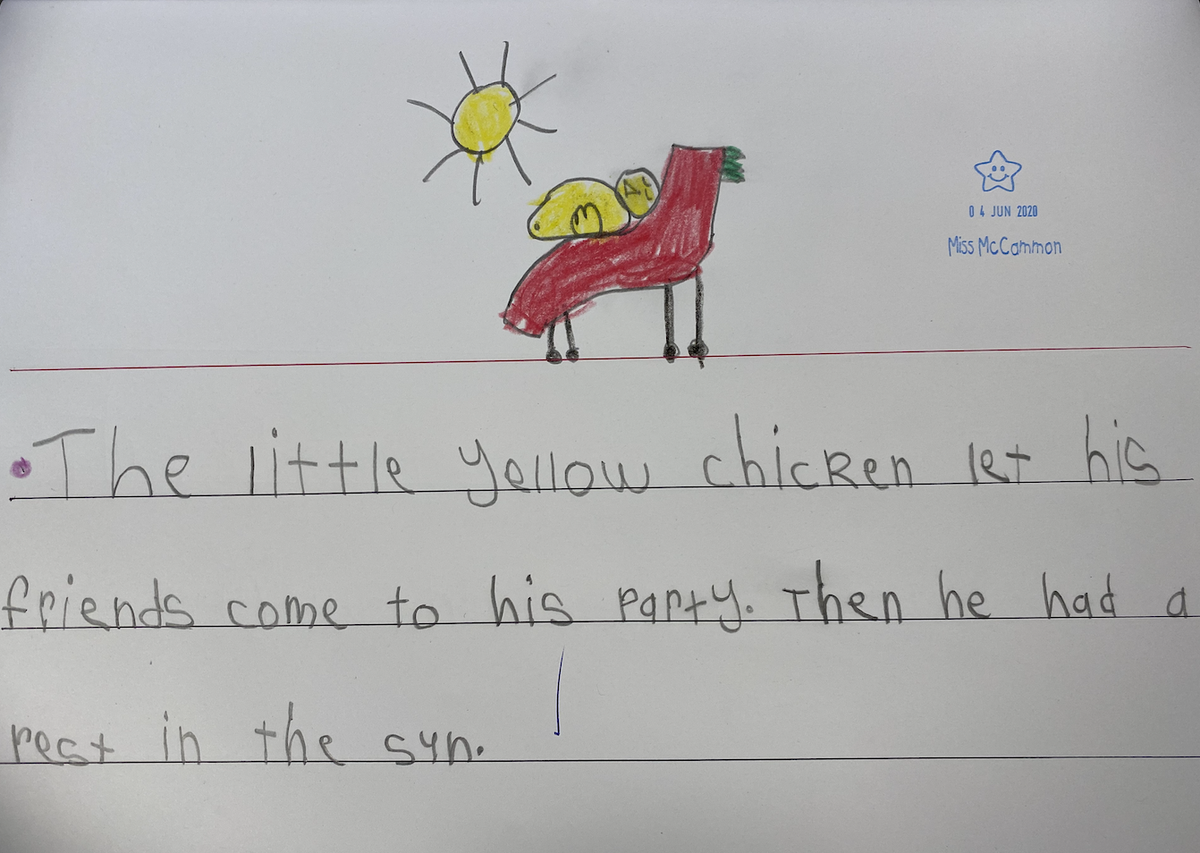 04 JUN 2020
Miss McCammon
The little yellow chicken let his
friends come to his party. Then he had a
rest in the sun.